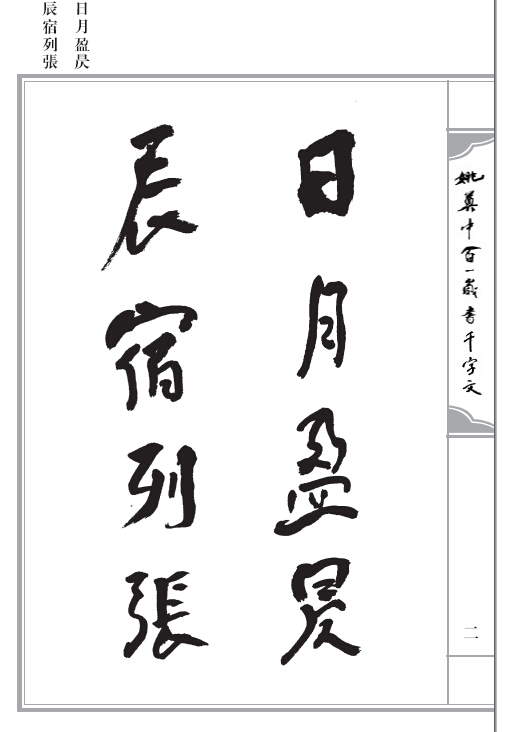 日月盈昃
辰宿列張
日月盈昃
辰宿列張
姚奠中百一歲書千字文
二